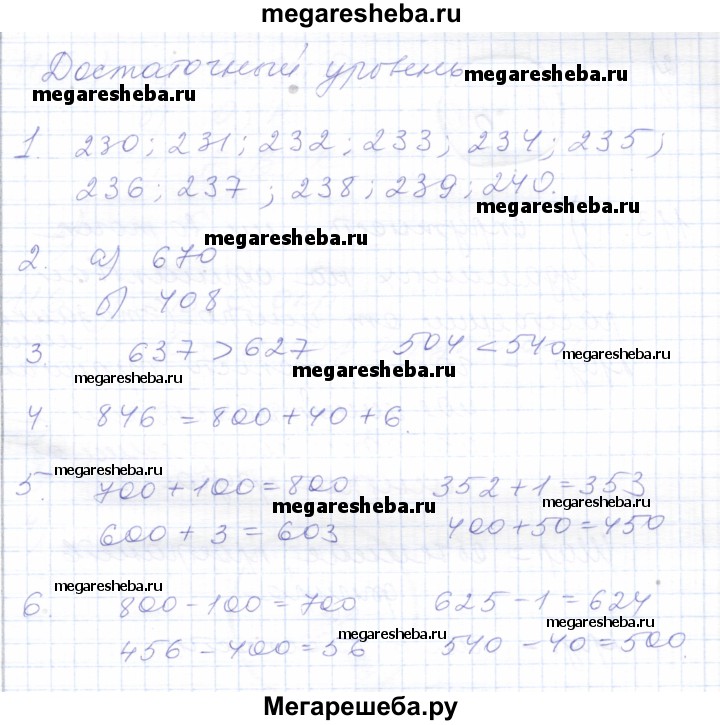 megaresheba.ru
megaresheba.ru
Достаточный уровень
megaresheba.ru
megaresheba.ru
1. 230; 231; 232; 233; 234; 235;
236; 237; 238; 239; 240.
megaresheba.ru
megaresheba.ru
2. а) 670
б) 408
3. 637 > 627 504 < 540
megaresheba.ru
megaresheba.ru
megaresheba.ru
4. 846 = 800 + 40 + 6.
megaresheba.ru
5. 700 + 100 = 800 352 + 1 = 353
megaresheba.ru
megaresheba.ru
600 + 3 = 603 400 + 50 = 450
megaresheba.ru
megaresheba.ru
6. 800 - 100 = 700 625 - 1 = 624
megaresheba.ru
456 - 400 = 56 540 - 40 = 500.
Мегарешеба.ру